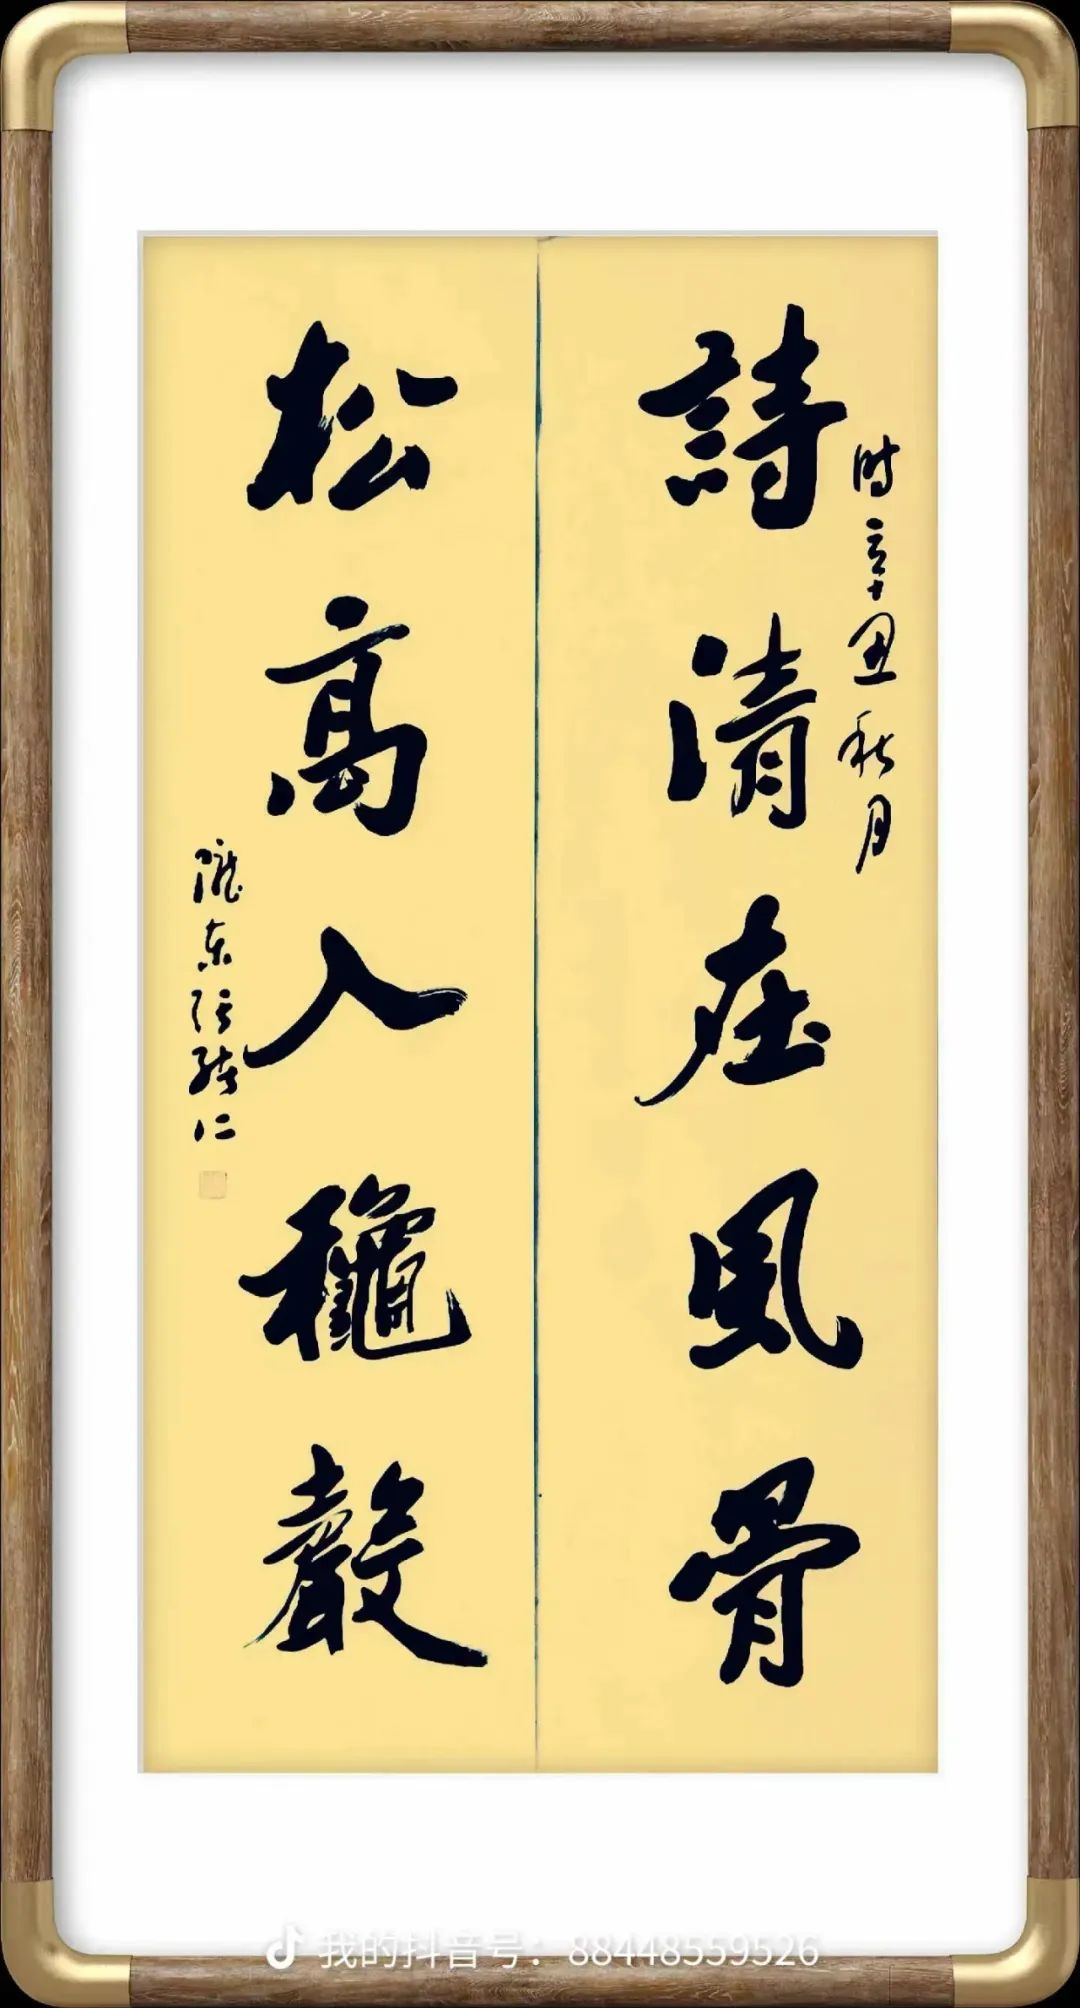 时辛丑秋月
詩清在風骨
松高入龝聲
隴东张仁
我的抖音号：88448559526